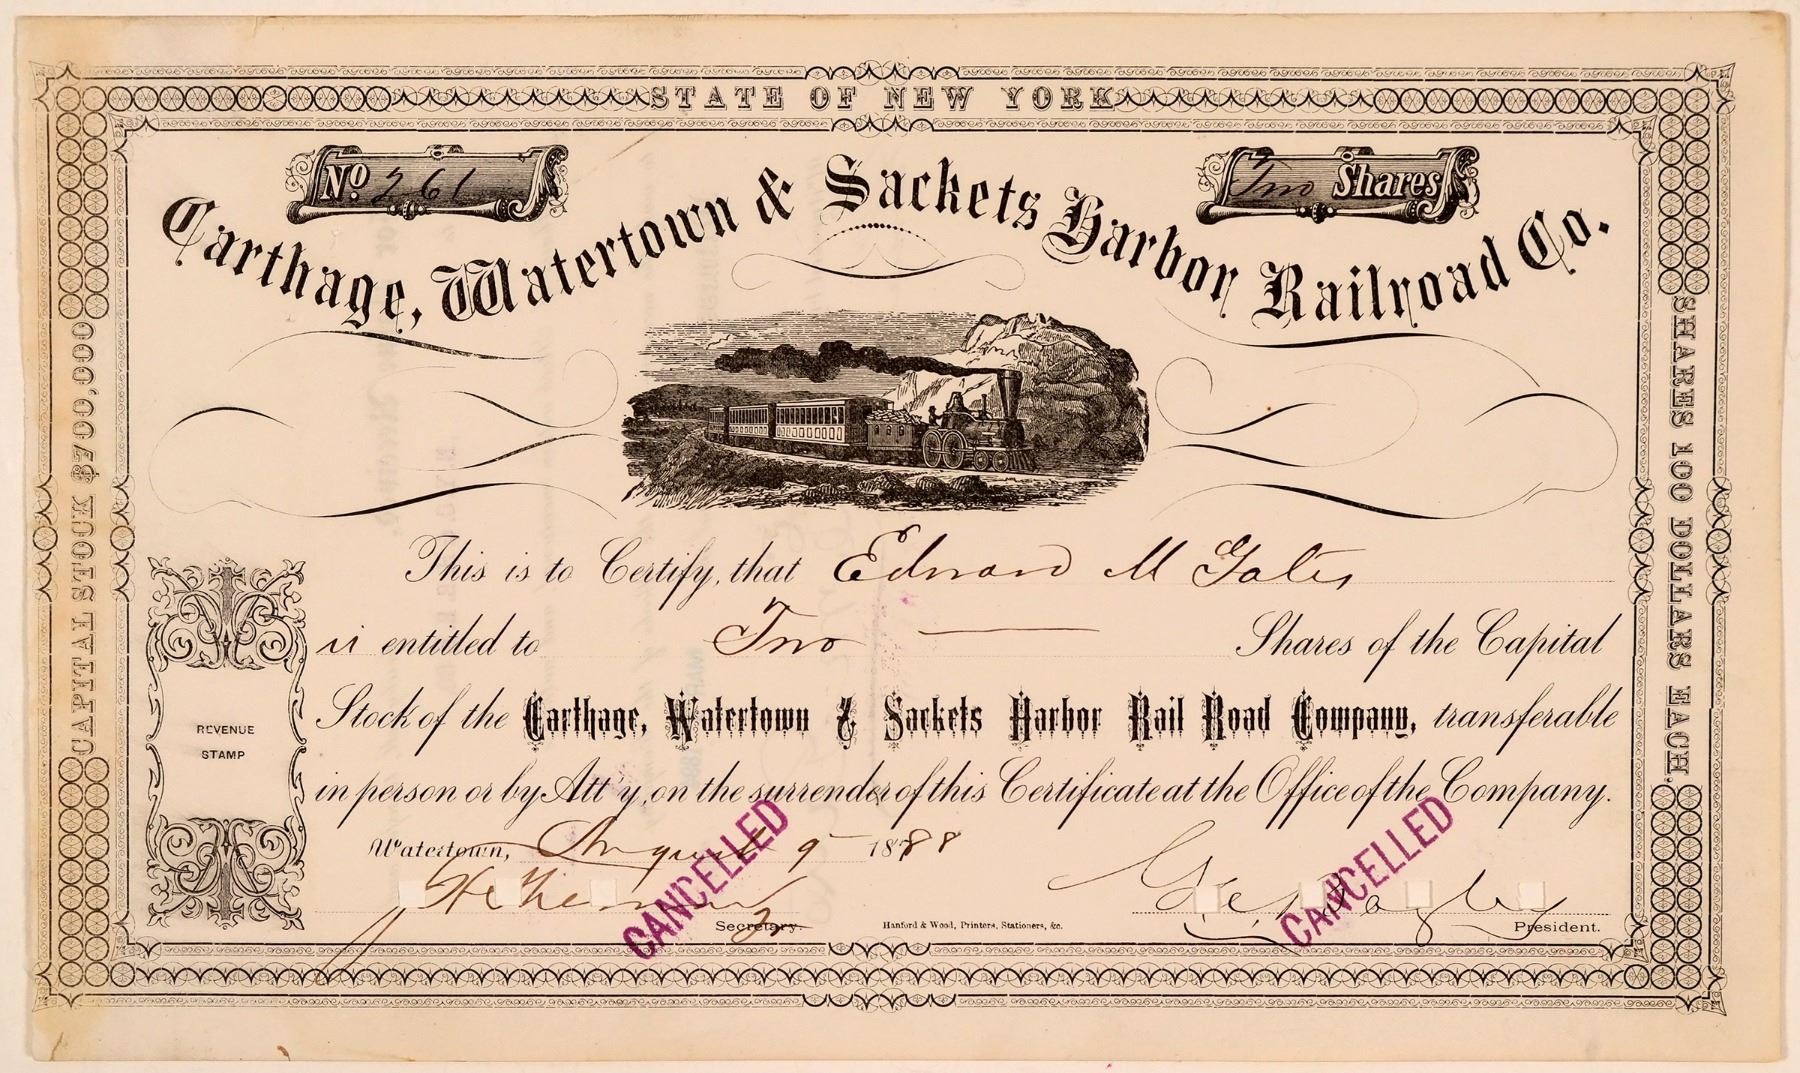 STATE OF NEW YORK
No 261
Two Shares
Carthage, Watertown & Sackets Harbor Railroad Co.
CAPITAL STOCK $700,000
SHARES 100 DOLLARS EACH.
This is to Certify, that Edward M Gates
is entitled to Two Shares of the Capital
Stock of the Carthage, Watertown & Sackets Harbor Rail Road Company, transferable
in person or by Att'y, on the surrender of this Certificate at the Office of the Company.
REVENUE
STAMP
Watertown, August 9 1888
CANCELLED
CANCELLED
Secretary.
Hanford & Wood, Printers, Stationers, &c.
President.